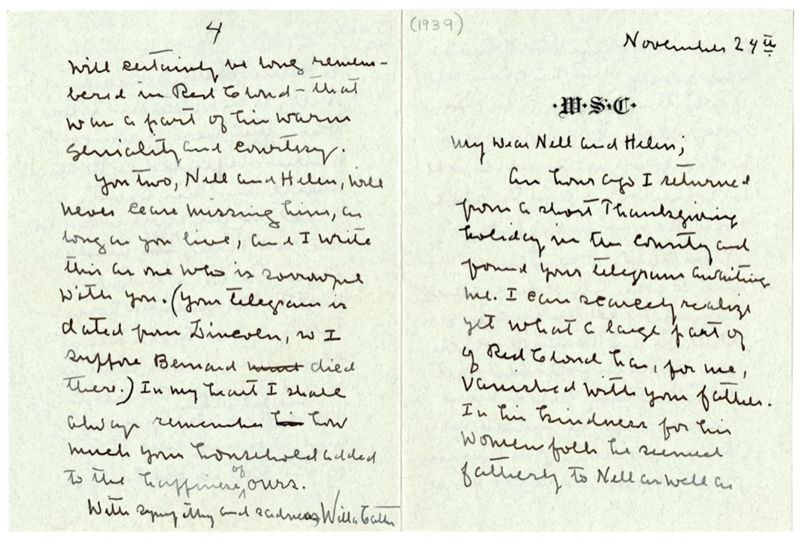 (1939)
November 24th
·W·S·C·
My dear Nell and Helen;
An hour ago I returned
from a short Thanksgiving
holiday in the country and
found your telegram awaiting
me. I can scarcely realize
yet what a large part of
of Red Cloud has, for me,
vanished with your father.
In his kindness for his
women folk he seemed
fatherly to Nell as well as
4
will certainly be long remem-
bered in Red Cloud - that
was a part of his warm
geniality and courtesy.
You two, Nell and Helen, will
never cease missing him, as
long as you live, and I write
this as one who is sorrowful
with you. (Your telegram is
dated from Lincoln, so I
suppose Bernard must died
there.) In my heart I shall
always remember his how
much your household added
to the happiness of ours.
With sympathy and sadness, Willa Cather